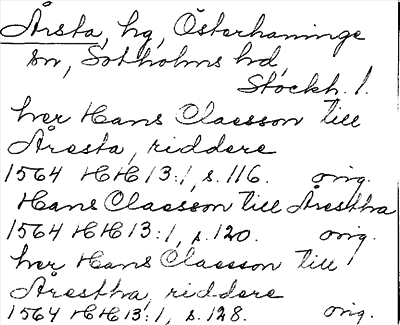 Årsta, hg, Österhaninge
sn, Sotholms hd,
Stockh. l.
her Hans Claesson till
Åresta, riddere
1564 HH 13:1, s. 116. orig.
Hans Claesson till Årestha
1564 HH 13:1, s. 120. orig.
her Hans Claesson till
Årestha, riddere
1564 HH 13:1, s. 128. orig.